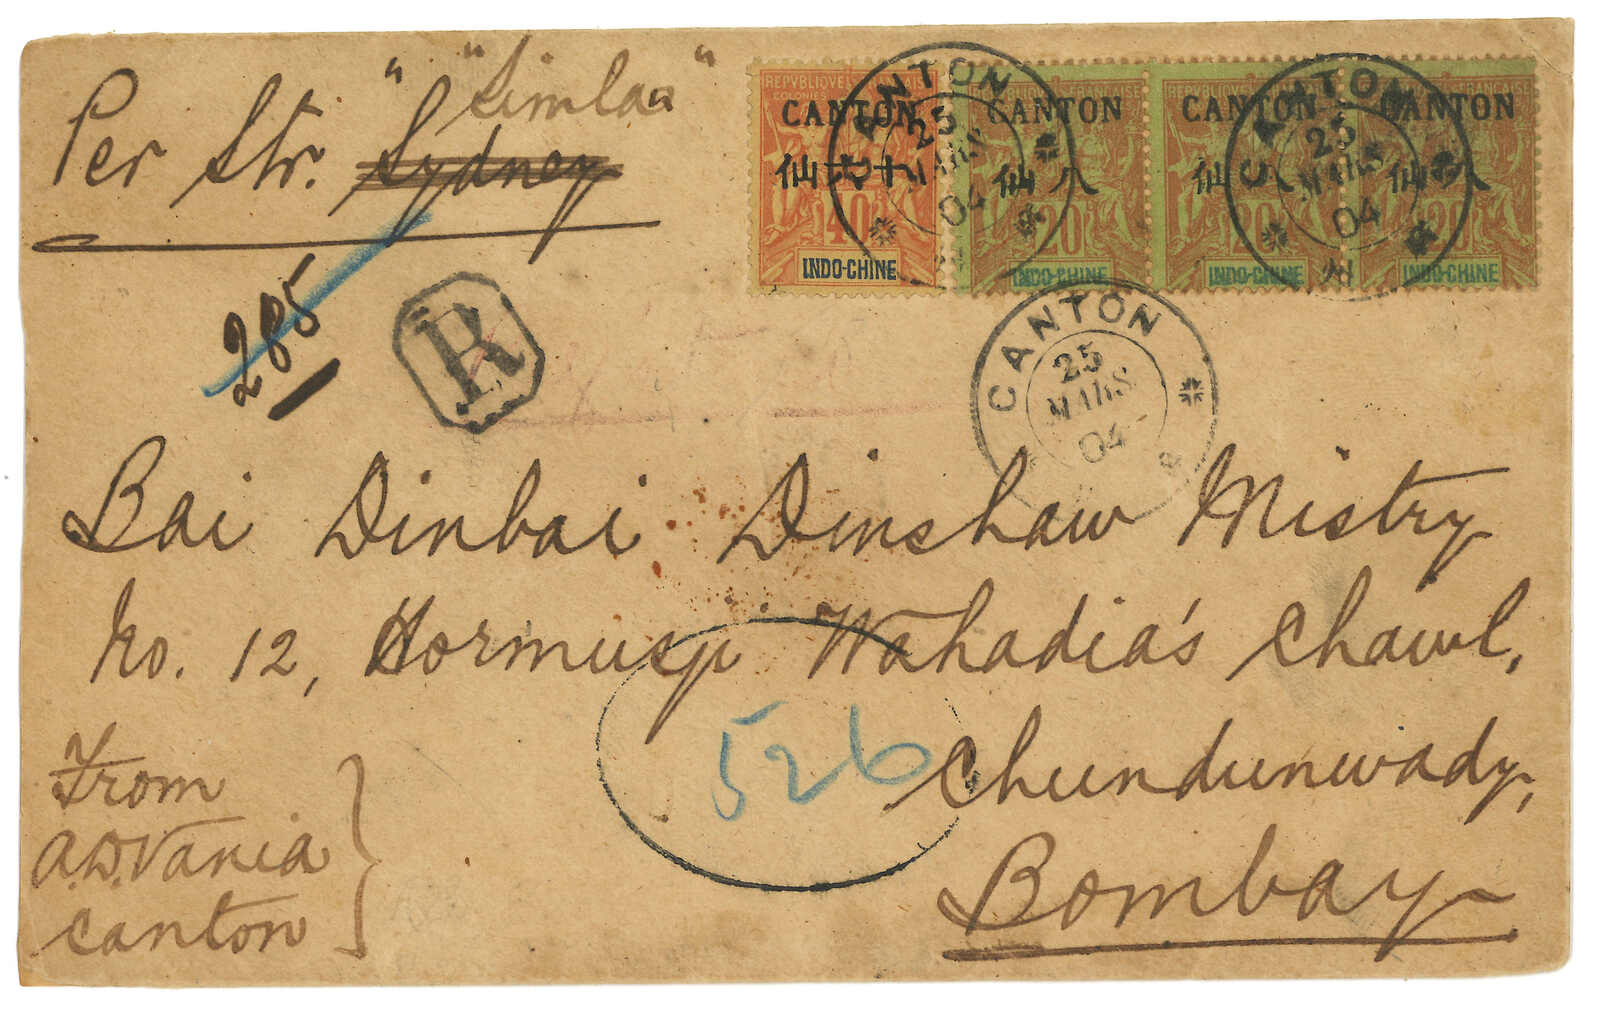 Per Str. "Sydney "Simla"
REPVBLIQVE FRANÇAISE
COLONIES
CANTON
仙六十
40
INDO-CHINE
CANTON
仙八
20
INDO-CHINE
CANTON
仙八
20
INDO-CHINE
FRANÇAISE
CANTON
仙八
20
INDO-CHINE
CANTON
25
MARS
04
CANTON
25
MARS
04
CANTON
25
MARS
04
285
R
Bai Dinbai Dinshaw Mistry
No. 12, Hormusji Wahadia's Chawl,
Chundunwady,
Bombay
526
From
A.D. Vania
Canton